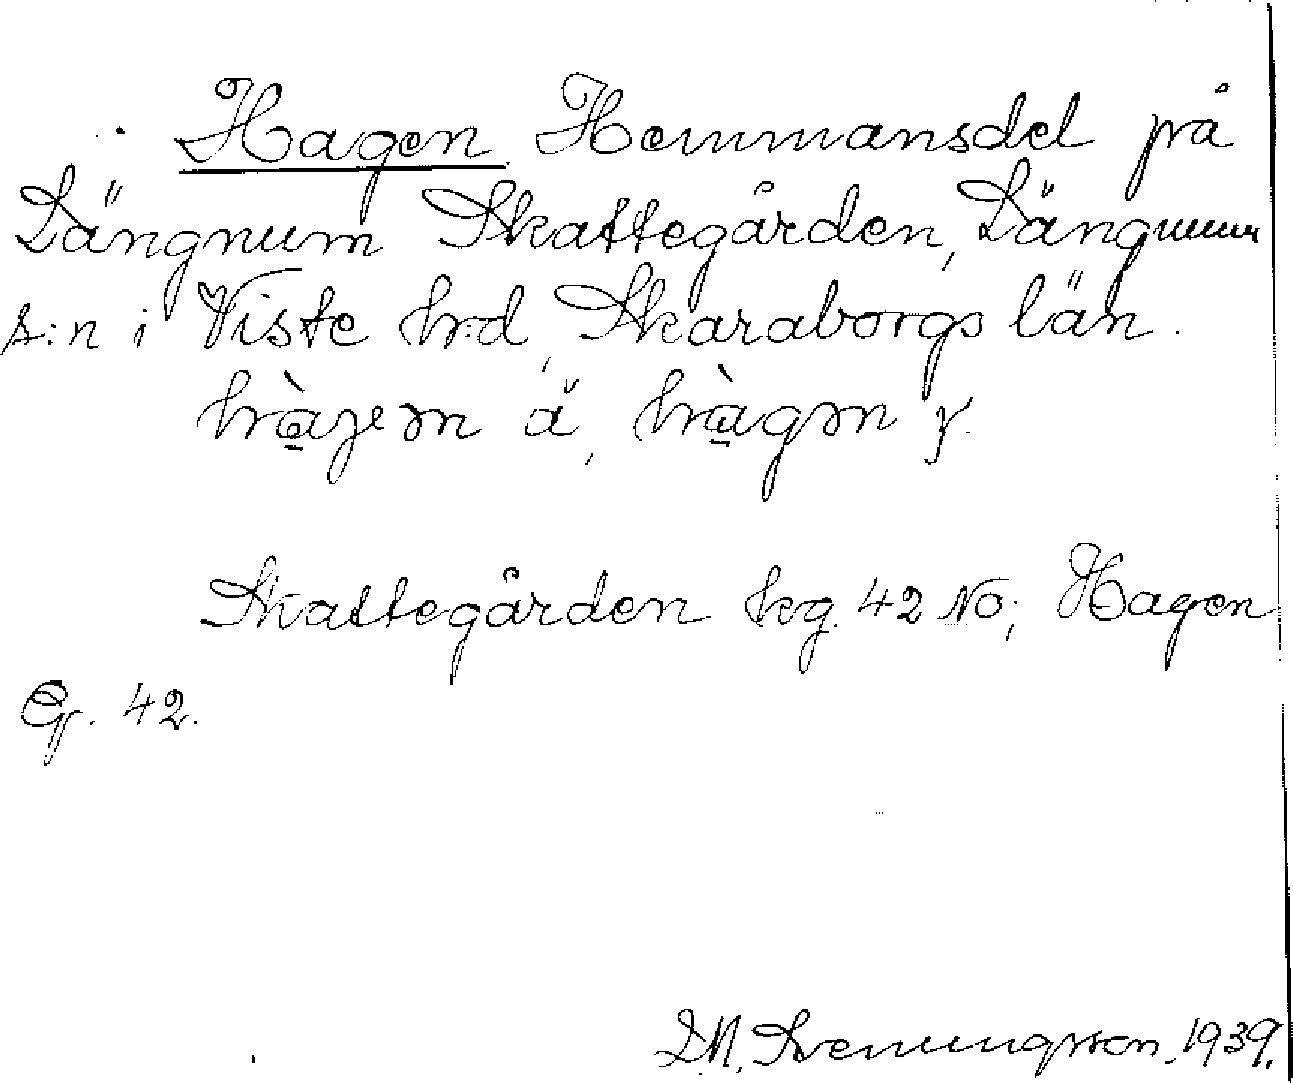 Hagen Hemmansdel på
Längnum Skattegården, Längnum
s:n i Viste hrd, Skaraborgs län.
Skattegården kg. 42 NO; Hagen
G. 42.
D.N. Svenungsson. 1939.